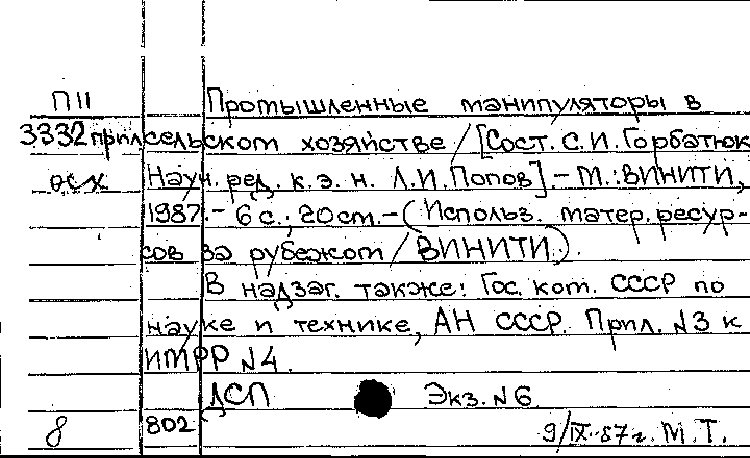 П11 Промышленные манипуляторы в
3332 прил сельском хозяйстве / [Сост. С.И. Горбатюк
осх Науч. ред. к.э.н. Л.И. Попов]. - М.: ВИНИТИ,
1987. - 6 с.; 20 см. - (Использ. матер. ресур-
сов за рубежом / ВИНИТИ).
В надзаг. также: Гос. ком. СССР по
науке и технике, АН СССР. Прил. №3 к
ИМРР №4.
ДСП Экз. №6.
8 802 9/IX-87г. М.Т.